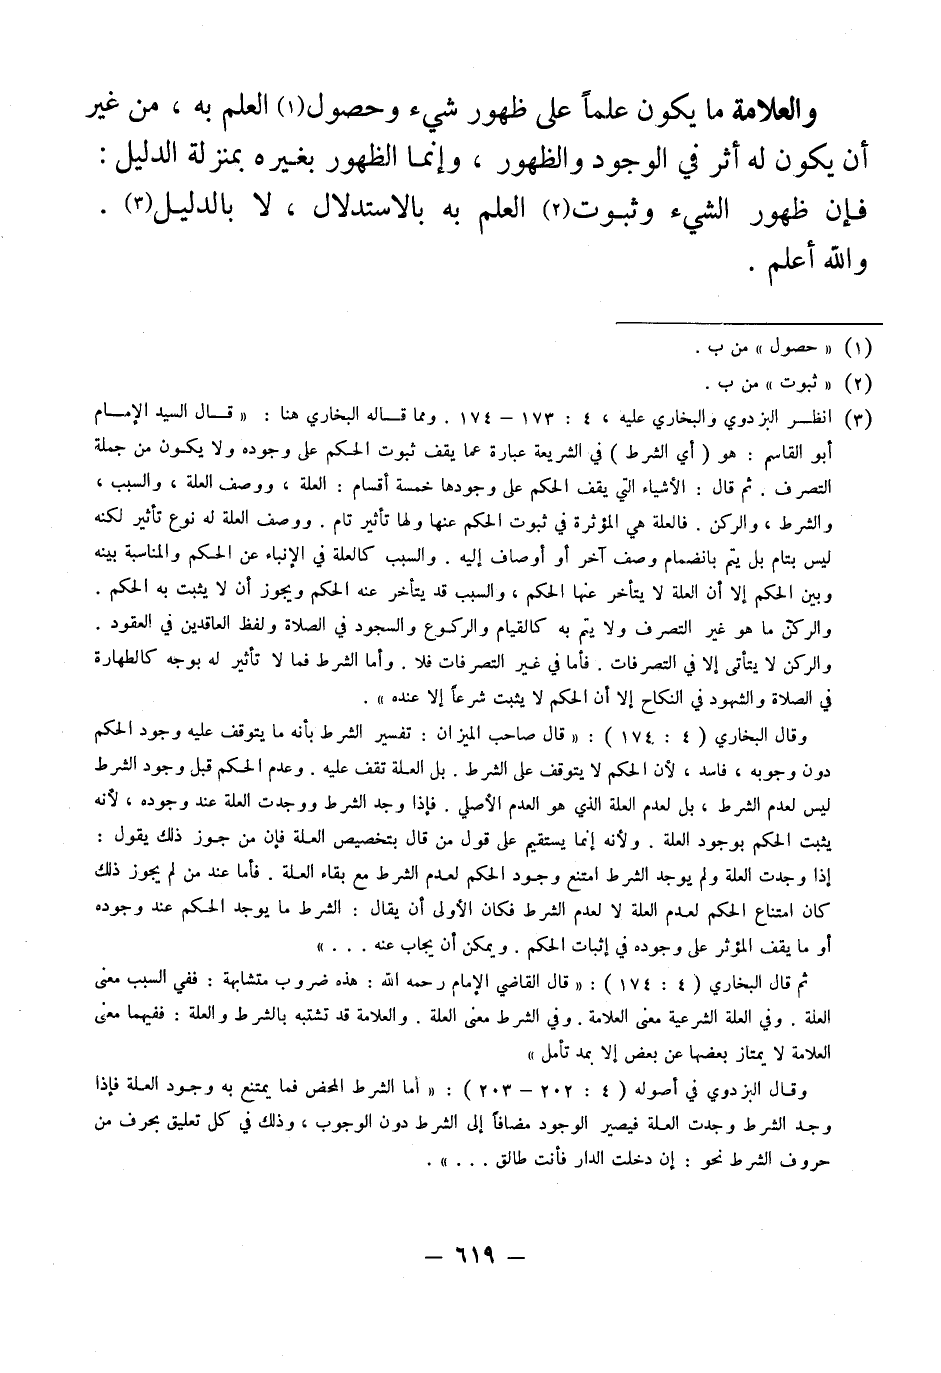 والعلامة ما يكون علماً على ظهور شيء وحصول(١) العلم به ، من غير
أن يكون له أثر في الوجود والظهور ، وإنما الظهور بغيره بمنزلة الدليل :
فإن ظهور الشيء وثبوت(٢) العلم به بالاستدلال ، لا بالدليل(٣) .
والله أعلم .
(١) « حصول » من ب .
(٢) « ثبوت » من ب .
(٣) انظر البزدوي والبخاري عليه ، ٤ : ١٧٣ – ١٧٤ . ومما قاله البخاري هنا : « قال السيد الإمام
أبو القاسم : هو ( أي الشرط ) في الشريعة عبارة عما يقف ثبوت الحكم على وجوده ولا يكون من جملة
التصرف . ثم قال : الأشياء التي يقف الحكم على وجودها خمسة أقسام : العلة ، ووصف العلة ، والسبب ،
والشرط ، والركن . فالعلة هي المؤثرة في ثبوت الحكم عنها ولها تأثير تام . ووصف العلة له نوع تأثير لكنه
ليس بتام بل يتم بانضمام وصف آخر أو أوصاف إليه . والسبب كالعلة في الإنباء عن الحكم والمناسبة بينه
وبين الحكم إلا أن العلة لا يتأخر عنها الحكم ، والسبب قد يتأخر عنه الحكم ويجوز أن لا يثبت به الحكم .
والركن ما هو غير التصرف ولا يتم به كالقيام والركوع والسجود في الصلاة ولفظ العاقدين في العقود .
والركن لا يتأتى إلا في التصرفات . فأما في غير التصرفات فلا . وأما الشرط فما لا تأثير له بوجه كالطهارة
في الصلاة والشهود في النكاح إلا أن الحكم لا يثبت شرعاً إلا عنده » .
وقال البخاري ( ٤ : ١٧٤ ) : « قال صاحب الميزان : تفسير الشرط بأنه ما يتوقف عليه وجود الحكم
دون وجوبه ، فاسد ، لأن الحكم لا يتوقف على الشرط . بل العلة تقف عليه . وعدم الحكم قبل وجود الشرط
ليس لعدم الشرط ، بل لعدم العلة الذي هو العدم الأصلي . فإذا وجد الشرط ووجدت العلة عند وجوده ، لأنه
يثبت الحكم بوجود العلة . ولأنه إنما يستقيم على قول من قال بتخصيص العلة فإن من جوز ذلك يقول :
إذا وجدت العلة ولم يوجد الشرط امتنع وجود الحكم لعدم الشرط مع بقاء العلة . فأما عند من لم يجوز ذلك
كان امتناع الحكم لعدم العلة لا لعدم الشرط فكان الأولى أن يقال : الشرط ما يوجد الحكم عند وجوده
أو ما يقف المؤثر على وجوده في إثبات الحكم . ويمكن أن يجاب عنه . . . »
ثم قال البخاري ( ٤ : ١٧٤ ) : « قال القاضي الإمام رحمه الله : هذه ضروب متشابهة : ففي السبب معنى
العلة . وفي العلة الشرعية معنى العلامة . وفي الشرط معنى العلة . والعلامة قد تشتبه بالشرط والعلة : ففيهما معنى
العلامة لا يمتاز بعضها عن بعض إلا بمد تأمل »
وقال البزدوي في أصوله ( ٤ : ٢٠٢ – ٢٠٣ ) : « أما الشرط المحض فما يمتنع به وجود العلة فإذا
وجد الشرط وجدت العلة فيصير الوجود مضافاً إلى الشرط دون الوجوب ، وذلك في كل تعليق بحرف من
حروف الشرط نحو : إن دخلت الدار فأنت طالق . . . » .
– ٦١٩ –